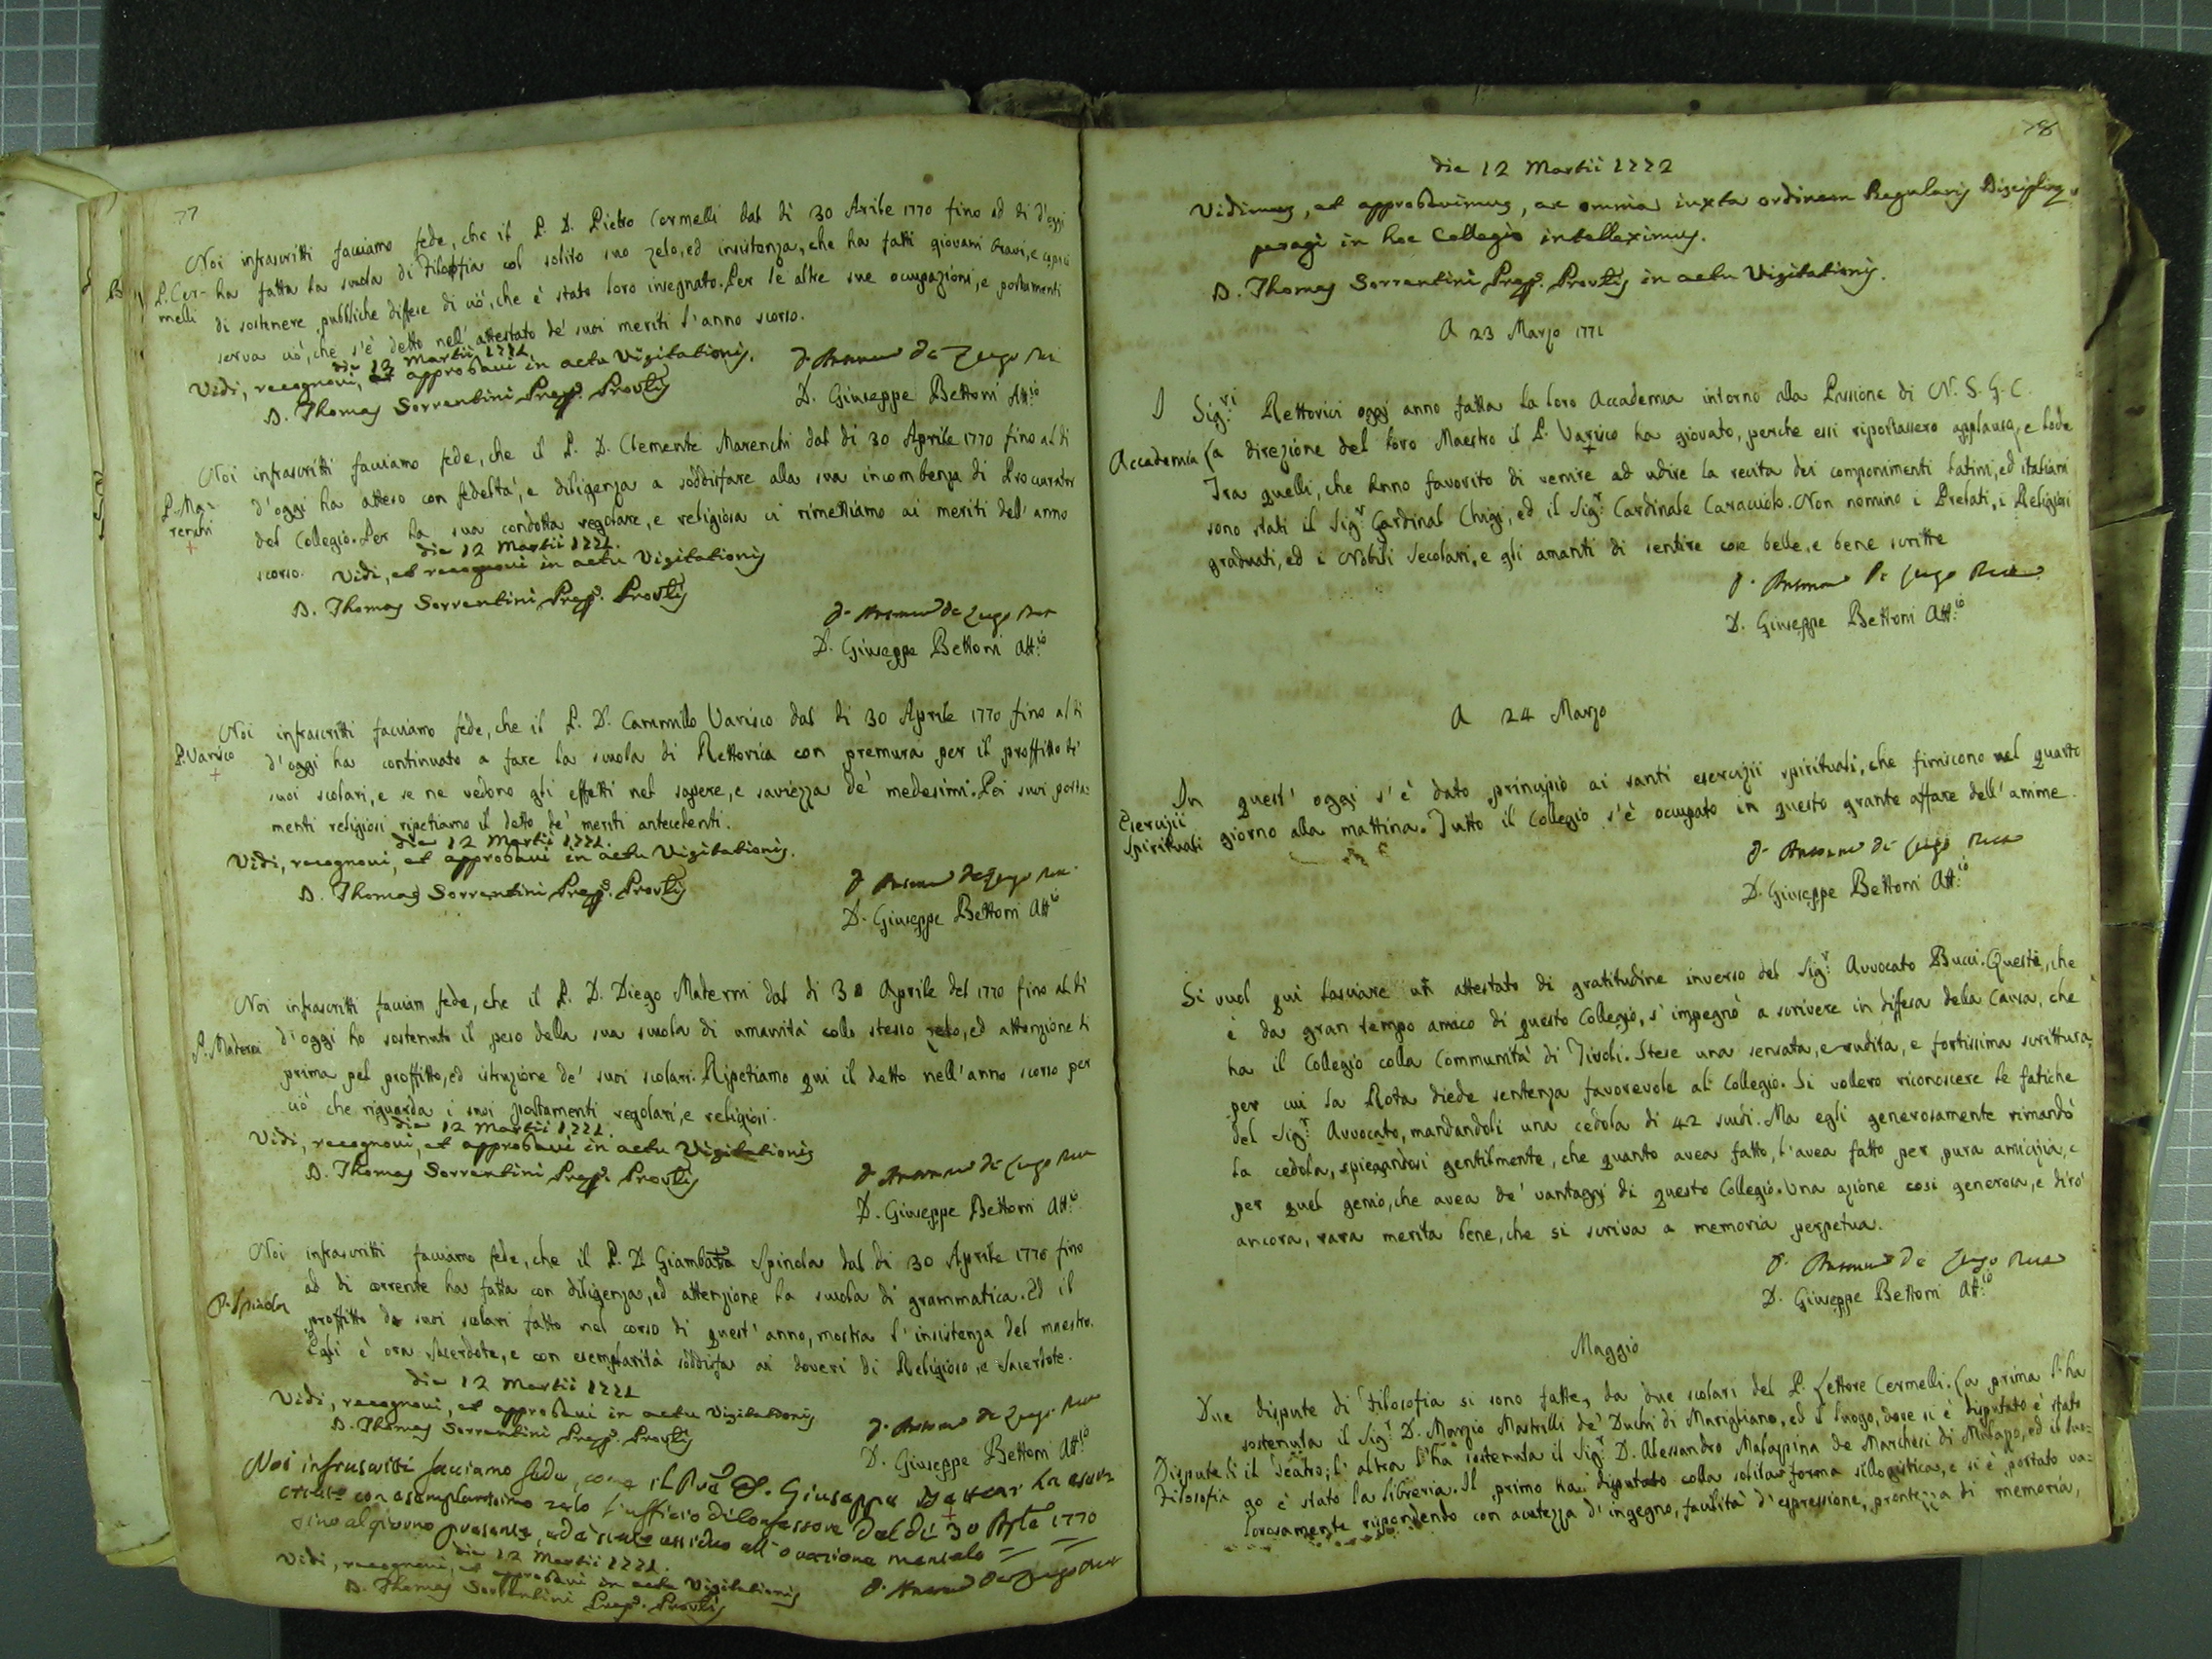 77
Noi infrascritti facciamo fede, che il P. D. Pietro Cermelli dal dì 30 Arile 1770 fino ad di d'oggi
P. Cer- ha fatta la scuola di Filosofia col solito suo zelo, ed insistenza, che ha fatti giovani bravi, e capaci
melli di sostenere pubbliche difese di ciò, che è stato loro insegnato. Per le altre sue occupazioni, e portamenti
serva ciò, che s'è detto nell' attestato de' suoi meriti l'anno scorso.
die 12 Martii 1771
Vidi, recognovi, et approbavi in actu Visitationis.
D. Thomas Sorrentini Prep. Provlis
D. de Lugo
D. Giuseppe Bettoni Att.io
Noi infrascritti facciamo fede, che il P. D. Clemente Marenchi dal dì 30 Aprile 1770 fino al dì
P. Ma- d'oggi ha atteso con fedeltà, e diligenza a soddisfare alla sua incombenza di Procurator
renchi del Collegio. Per la sua condotta regolare, e religiosa ci rimettiamo ai meriti dell' anno
scorso.
die 12 Martii 1771.
Vidi, et recognovi in actu Visitationis
D. Thomas Sorrentini Prep. Provlis
D. de Lugo
D. Giuseppe Bettoni Att.io
Noi infrascritti facciamo fede, che il P. D. Cammillo Varisco dal dì 30 Aprile 1770 fino al dì
P. Varisco d'oggi ha continuato a fare la scuola di Rettorica con premura per il proffitto di'
suoi scolari, e se ne vedono gli effetti nel sapere, e saviezza de' medesimi. Pei suoi porta=
menti religiosi ripetiamo il detto de' meriti antecedenti.
die 12 Martii 1771.
Vidi, recognovi, et approbavi in actu Visitationis.
D. Thomas Sorrentini Prep. Provlis
D. de Lugo
D. Giuseppe Bettoni Att.io
Noi infrascritti facciam fede, che il P. D. Diego Materni dal dì 30 Aprile del 1770 fino al dì
P. Materni d'oggi ho sostenuto il peso della sua scuola di umanità collo stesso zelo, ed attenzione di
prima pel proffitto, ed istruzione de' suoi scolari. Ripetiamo qui il detto nell'anno scorso per
ciò che riguarda i suoi portamenti regolari, e religiosi.
die 12 Martii 1771.
Vidi, recognovi, et approbavi in actu Visitationis
D. Thomas Sorrentini Prep. Provlis
D. de Lugo
D. Giuseppe Bettoni Att.io
Noi infrascritti facciamo fede, che il P. D. Giambatta Spinola dal dì 30 Aprile 1770 fino
P. Spinola ad dì corrente ha fatta con diligenza, ed attenzione la scuola di grammatica. Ed il
proffitto de suoi scolari fatto nel corso di quest' anno, mostra l' insistenza del maestro.
Egli è ora Sacerdote, e con esemplarità soddisfa ai doveri di Religioso, e Sacerdote.
die 12 Martii 1771
Vidi, recognovi, et approbavi in actu Visitationis
D. Thomas Sorrentini Prep. Provlis
D. de Lugo
D. Giuseppe Bettoni Att.io
Noi infrascritti facciamo fede, come il D. Giuseppe ha eser
citato con esemplarissimo zelo l'ufficio di Confessore dal dì 30 Aple 1770
sino al giorno presente, ed è stato assiduo all' orazione mentale
die 12 Martii 1771.
Vidi, recognovi, et approbavi in actu Visitationis
D. Thomas Sorrentini Prep. Provlis
D. de Lugo
78
die 12 Martii 1772
Vidimus, et approbavimus, ac omnia iuxta ordinem Regularis Disciplinę
peragi in hoc Collegio intelleximus.
D. Thomas Sorrentini Prep. Provlis in actu Visitationis.
A 23 Marzo 1771
I Sig.ri Rettorici oggi anno fatta la loro Accademia intorno alla Passione di N. S. G. C.
Accademia La direzione del loro Maestro il P. Varisco ha giovato, perche essi riportassero applauso, e lode
Tra quelli, che anno favorito di venire ad udire la recita dei componimenti latini, ed italiani
sono stati il Sig.r Cardinal Chigi, ed il Sig.r Cardinale Caracciolo. Non nomino i Prelati, i Religiosi
graduati, ed i Nobili secolari, e gli amanti di sentire cose belle, e bene scritte
D. de Lugo
D. Giuseppe Bettoni Att.io
A 24 Marzo
In quest' oggi s' è dato principio ai santi esercizii spirituali, che finiscono nel quarto
Esercizii
Spirituali giorno alla mattina. Tutto il Collegio s' è occupato in questo grante affare dell'amme.
D. de Lugo
D. Giuseppe Bettoni Att.io
Si vuol qui lasciare un attestato di gratitudine inverso del Sig.r Avvocato Bucci. Questi, che
è da gran tempo amico di questo Collegio, s' impegnò a scrivere in difesa della Causa, che
ha il Collegio colla Communità di Tivoli. Stese una sensata, erudita, e fortissima scrittura,
per cui la Rota diede sentenza favorevole al Collegio. Si vollero riconoscere le fatiche
del Sig.r Avvocato, mandandoli una cedola di 42 scudi. Ma egli generosamente rimandò
la cedola, spiegandosi gentilmente, che quanto avea fatto, l'avea fatto per pura amicizia, e
per quel genio, che avea de' vantaggi di questo Collegio. Una azione così generosa, e dirò
ancora, rara merita bene, che si scriva a memoria perpetua.
D. de Lugo
D. Giuseppe Bettoni Att.io
Maggio
Due dispute di Filosofia si sono fatte, da due scolari del P. Lettore Cermelli. La prima l'ha
sostenuta il Sig.r D. Marzio Mastrilli de' Duchi di Marigliano, ed il luogo, dove si è disputato è stato
Dispute di il Teatro; l' altra l'ha sostenuta il Sig.r D. Alessandro Malaspina de Marchesi di Mulazo, ed il luo=
Filosofia go è stato la libreria. Il primo ha disputato colla solita forma sillogistica, e si è portato va=
lorosamente rispondendo con acutezza d' ingegno, facilità d'espressione, prontezza di memoria,